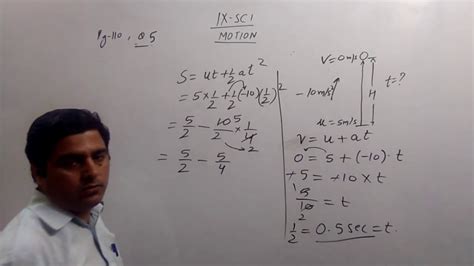 Pg-110, Q5
IX-SCI
MOTION
S = ut + 1/2 at²
= 5 × 1/2 + 1/2 (-10) (1/2)²
= 5/2 - 10 5/2 × 1/4 2
= 5/2 - 5/4
v = 0 m/s
-10 m/s²
H
t = ?
u = 5 m/s
v = u + at
0 = 5 + (-10) · t
+5 = +10 × t
1 5/10 2 = t
1/2 = 0.5 sec = t.